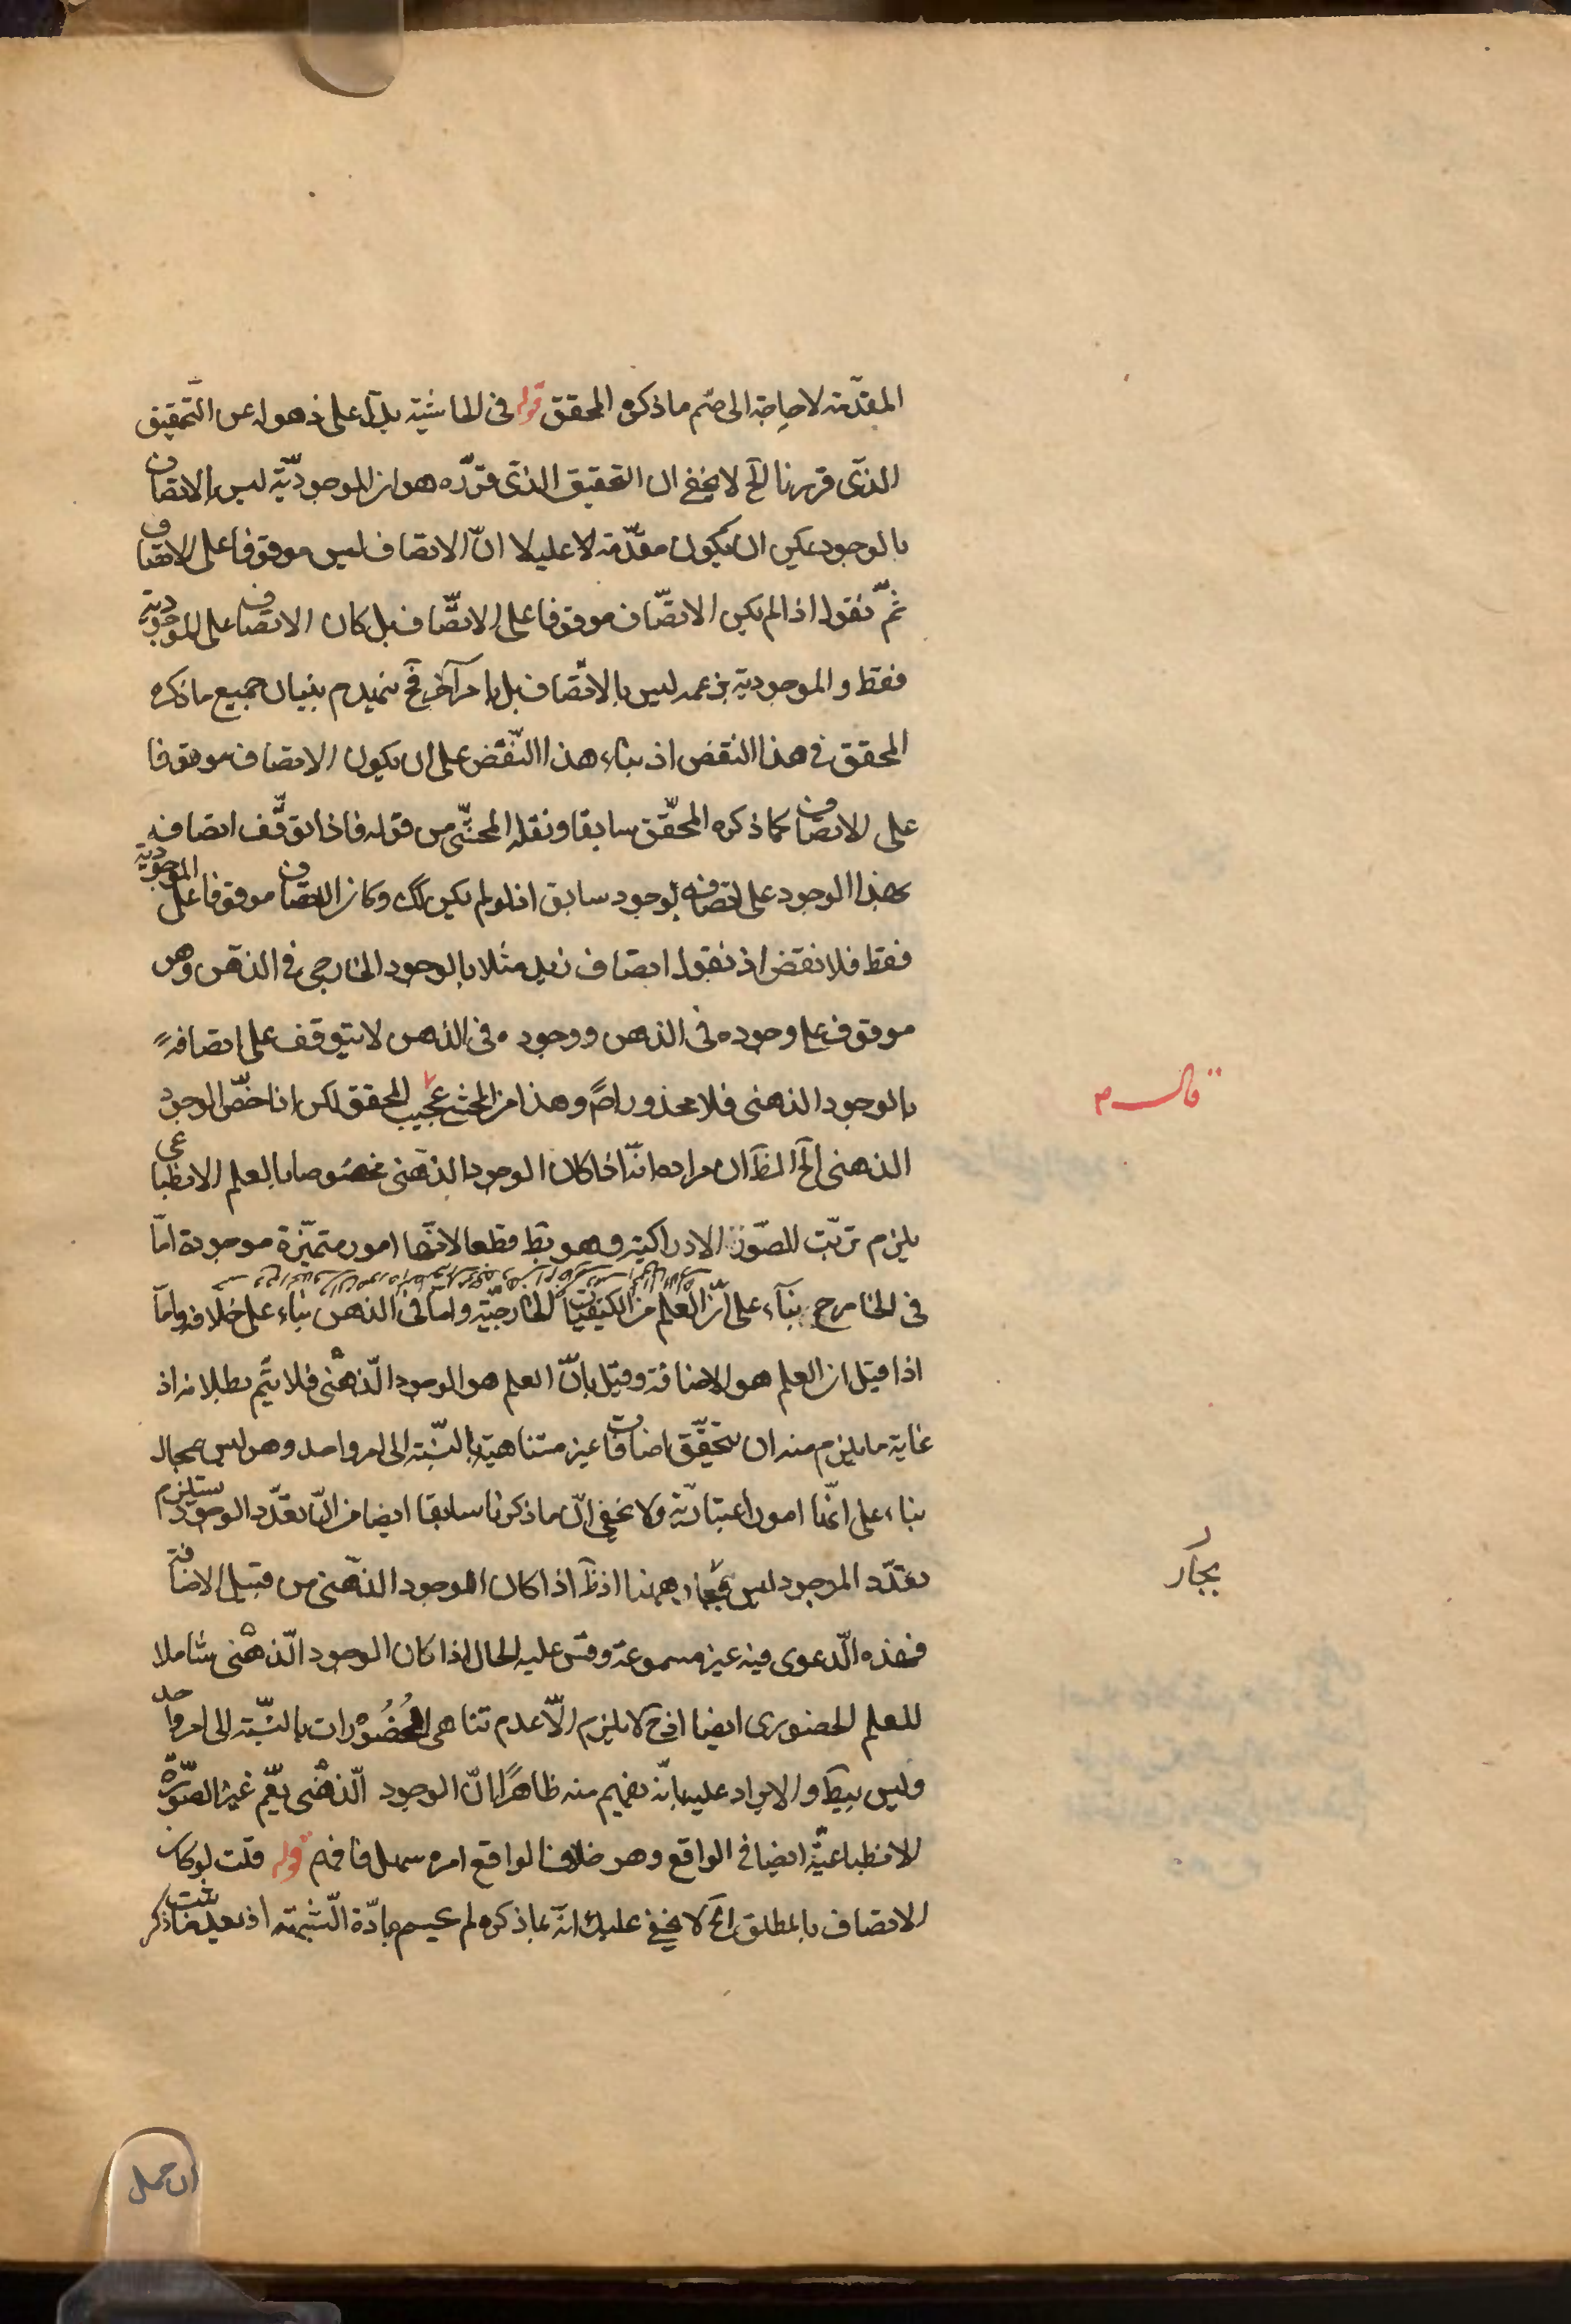 المقدّمة لا حاجة الى ضم ما ذكره المحقق قوله فى الحاشية بناء على ذهوله عن التّحقيق
الذى قررنا الخ لا يخفى ان التحقيق الذى قرّره هو ان الموجوديّة ليس بالاتصاف
بالوجود يمكن ان يكون مقدّمة لا عليلا انّ الاتصاف ليس موقوفا على الاتصاف
ثمّ نقول اذا لم يكن الاتصّاف موقوفا على الاتصّاف بل كان الاتصاف على الموجودية
فقط والموجودية بزعمه ليس بالاتصّاف بل بامر آخر فح ينهدم بنيان جميع ما ذكره
المحقق فى هذا النقض اذ بناء هذا النّقض على ان يكون الاتصاف موقوفا
على الاتصاف كما ذكره المحّقق سابقا ونقله المحشّى من قوله فاذا توقّف اتصافه
بهذا الوجود على اتصافه بوجود سابق اذ لو لم يكن كك وكان الاتصاف موقوفا على الموجودية
فقط فلا نقض اذ نقول اتصاف زيد مثلا بالوجود الخارجى فى الذهن وهو
موقوف على وجوده فى الذهن ووجوده فى الذهن لا يتوقف على اتصافه
بالوجود الذهنى فلا محذور اصلا وهذا من المحشى عجيب المحقق لكن انا خصّ الوجود
الذهنى الخ الظ ان مراده انّا اذا كان الوجود الذهنى مخصوصا بالعلم الانطباعى
يلزم ترتّب الصّور الادراكية وهو بط قطعا لانّها امور متميّزة موجودة امّا
فى الخارج بناء على انّ العلم من الكيفيّات الخارجيّة واما فى الذهن بناء على خلافه وامّا
اذا قيل ان العلم هو الاضافة وقيل بانّ العلم هو الوجود الذّهنى فلا يتّم بطلانه اذ
غاية ما يلزم منه ان يتحقّق اضافات غير متناهية بالنسّبة الى امر واحد وهو ليس بمحال
بناء على انّها امور اعتباريّة ولا يخفى انّ ما ذكرنا سابقا ايضا من انّ تعدّد الوجود يستلزم
تعدّد الموجود ليس بجار ههنا اذ ظ اذا كان الوجود الذهّنى من قبيل الاضافة
فهذه الدّعوى فيه غير مسموعة وقس عليه الحال اذا كان الوجود الذّهنى شاملا
للعلم الحضورى ايضا اذ ح لا يلزم الّا عدم تناهى الحُضُورات بالنسّبة الى امر واحد
وليس ببط والايراد عليه بانّه يفهم منه ظاهرًا انّ الوجود الذّهنى يعّم غير الصّورة
الانطباعيّة ايضا فى الواقع وهو خلاف الواقع امره سهل فافهم قوله قلت لو كان
الاتصاف بالمطلق الخ لا يخفى عليك انّه بما ذكره لم يحسم مادّة الشّبهة اذ بعد ما ذكر
قال م
بجار
ان حمل